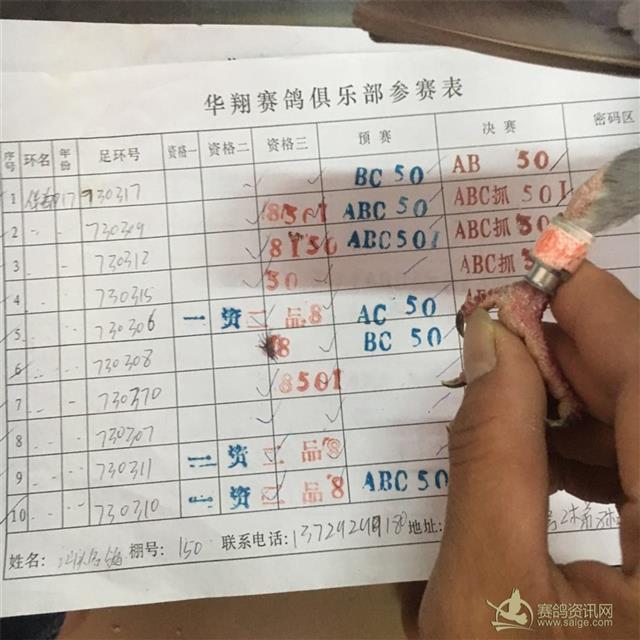 华翔赛鸽俱乐部参赛表
序号 环名 年份 足环号 资格一 资格二 资格三 预赛 决赛 密码区
1 17 730317 BC 50 AB 50
2 730309 8501 ABC 50 ABC抓 501
3 730312 8150 ABC501 ABC抓
4 730315 50 ABC抓
5 730306 一 资 二 品8 AC 50
6 730308 8 BC 50
7 730370 8501
8 730307
9 730311 三 资 三 品8
10 730310 二 资 品8 ABC 50
姓名: 棚号: 150 联系电话: 地址:
赛鸽资讯网
www.saige.com